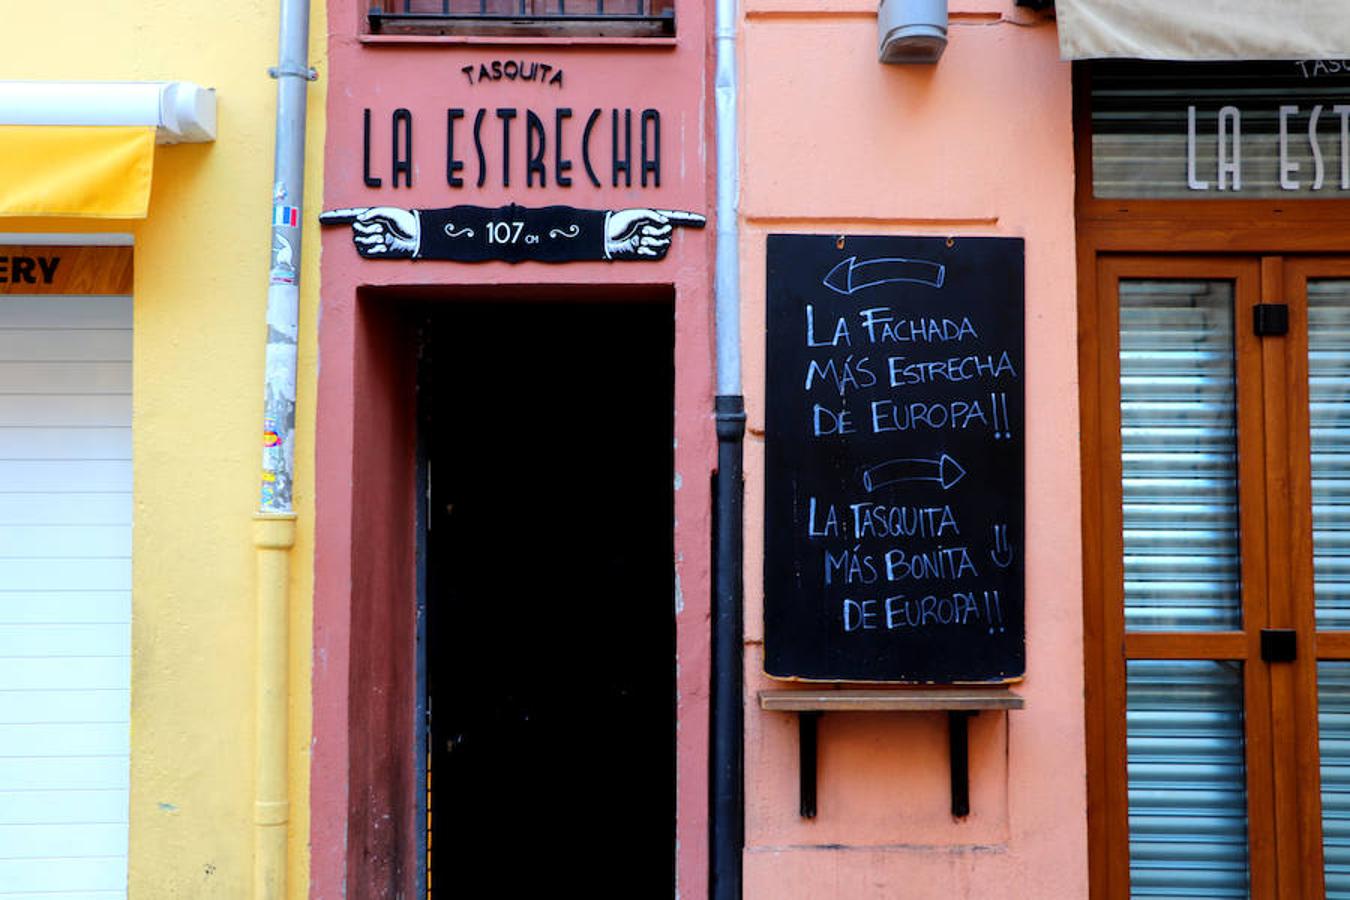 TASQUITA
LA ESTRECHA
107 CM
ERY
LA FACHADA
MÁS ESTRECHA
DE EUROPA!!
LA TASQUITA
MÁS BONITA
DE EUROPA!!
TASQ
LA EST